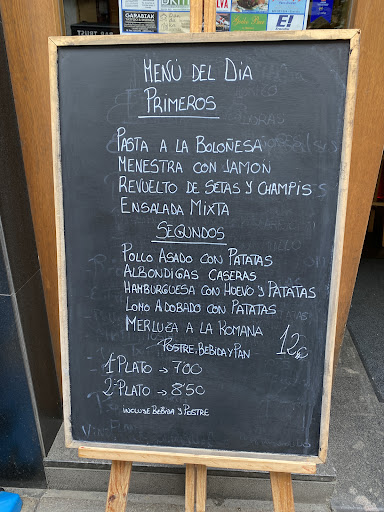 GARABIAK
MENÚ DEL DIA
PRIMEROS
PASTA A LA BOLOÑESA
MENESTRA CON JAMON
REVUELTO DE SETAS Y CHAMPIS
ENSALADA MIXTA
SEGUNDOS
POLLO ASADO CON PATATAS
ALBONDIGAS CASERAS
HAMBURGUESA CON HUEVO Y PATATAS
LOMO ADOBADO CON PATATAS
MERLUZA A LA ROMANA
POSTRE, BEBIDA Y PAN 12€
1 PLATO → 7'00
2 PLATO → 8'50
INCLUSE BEBIDA Y POSTRE